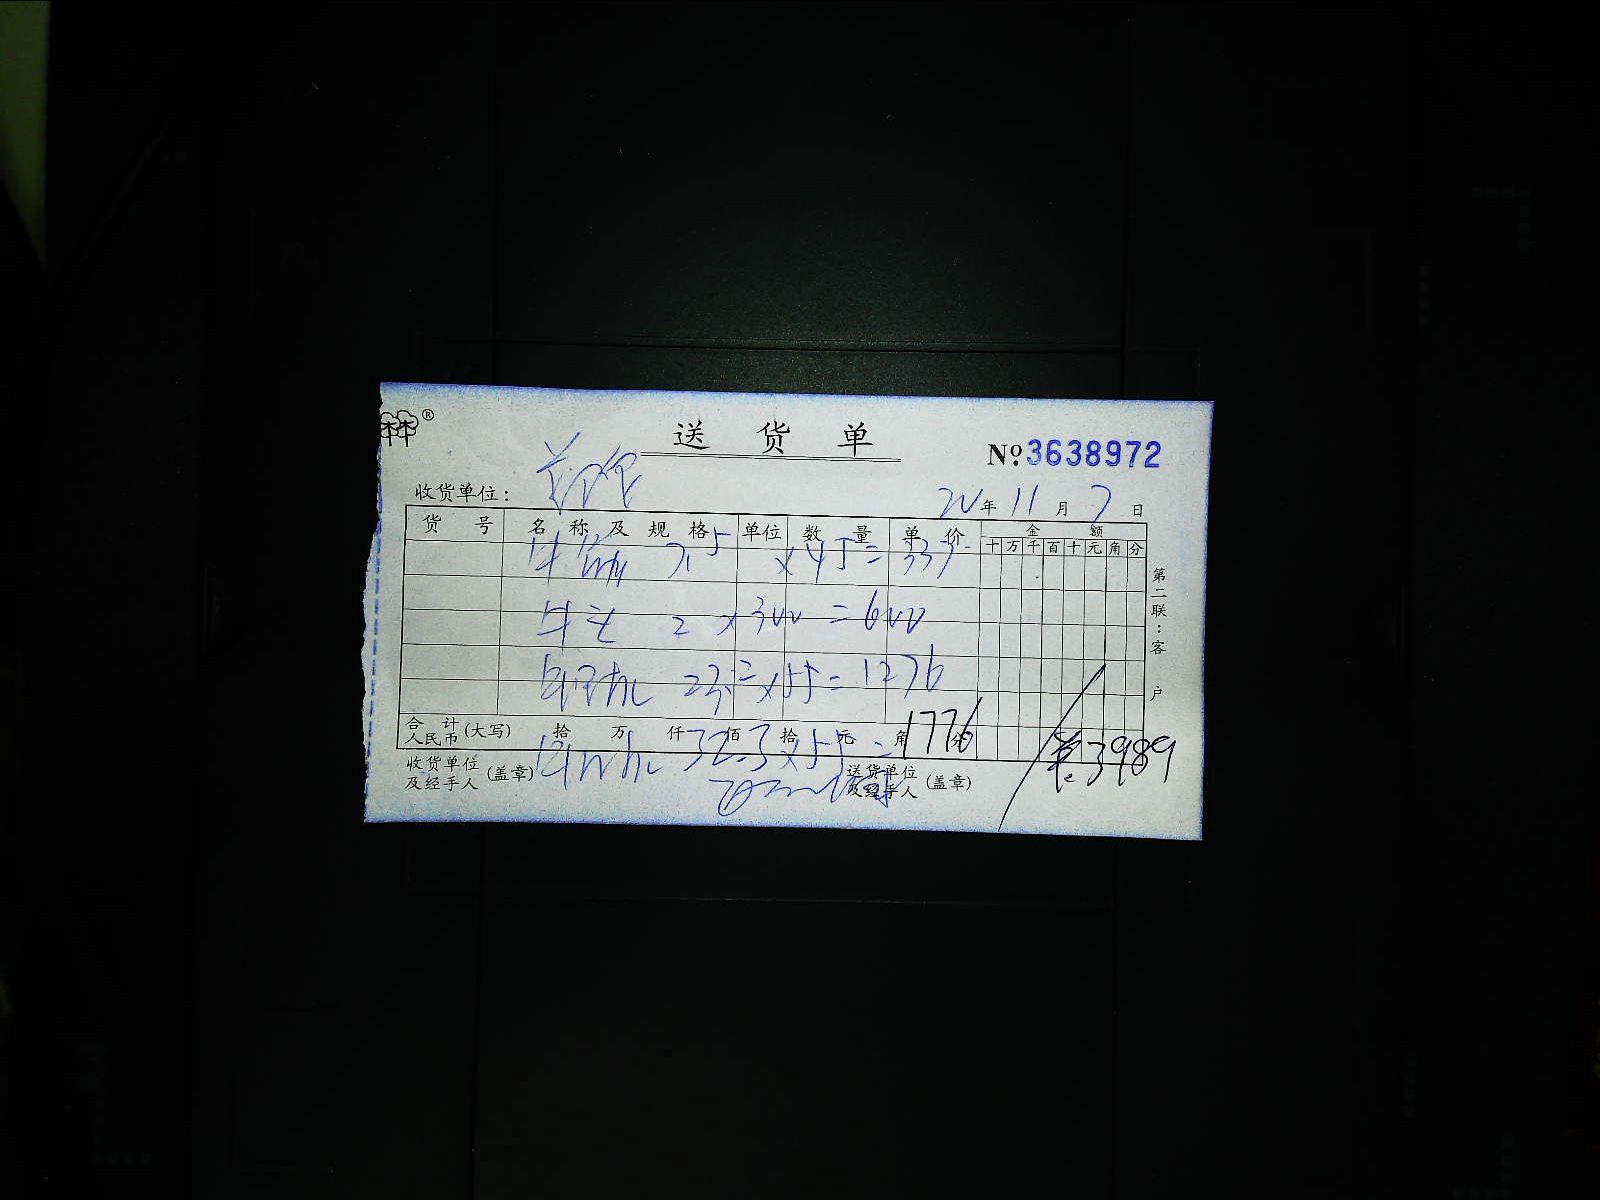 林®
送货单
No.3638972
收货单位:
20年11月7日
货号 名称及规格 单位 数量 单价 金额
十万千百十元角分
牛 7.5 ×45=337
牛 2×300=600
23.2×55=1276
32.3×55=1776
合计人民币(大写) 拾 万 仟 佰 拾 元 角 分
3989
收货单位及经手人(盖章) 送货单位及经手人(盖章)
第二联:客户